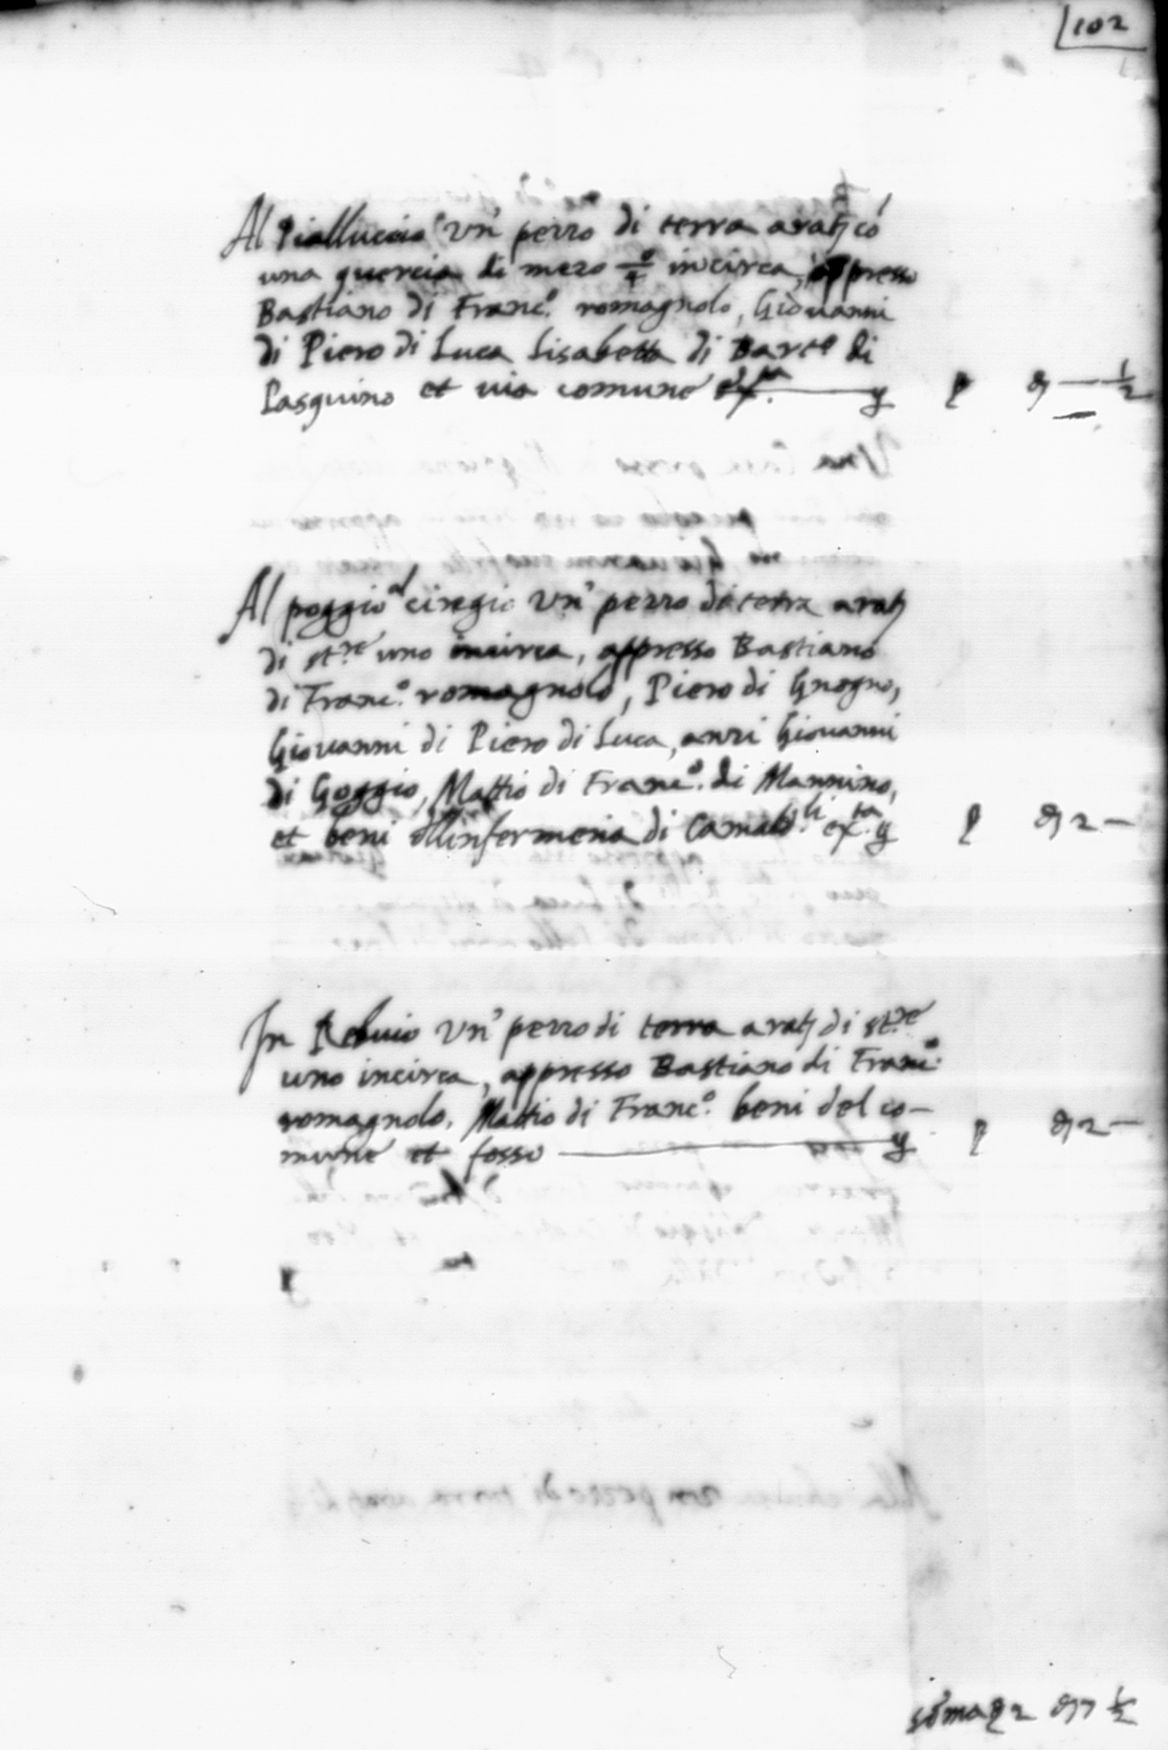 102
Al Pialluccio un' pezzo di terra arat: có
una quercia di mezo q/4 incirca, appresso
Bastiano di Franc.º romagnolo, Giovanni
di Piero di Luca Lisabetta di Bartº di
Pasquino et via comune ex.ta
½
Al poggio al ciregio un' pezzo di terra arat:
di st.re uno incirca, appresso Bastiano
di Franc.º romagnolo, Piero di Gnogno,
Giovanni di Piero di Luca, anzi Giovanni
di Goggio, Mattio di Franc.º di Mannino,
et beni dllinfermeria di Camald.li ex.ta 2 —
In un' pezzo di terra arat: di st.re
uno incirca, appresso Bastiano di Franc.º
romagnolo, Mattio di Franc.º beni del co-
mune et fosso 2 —
sõma 2 7 ½